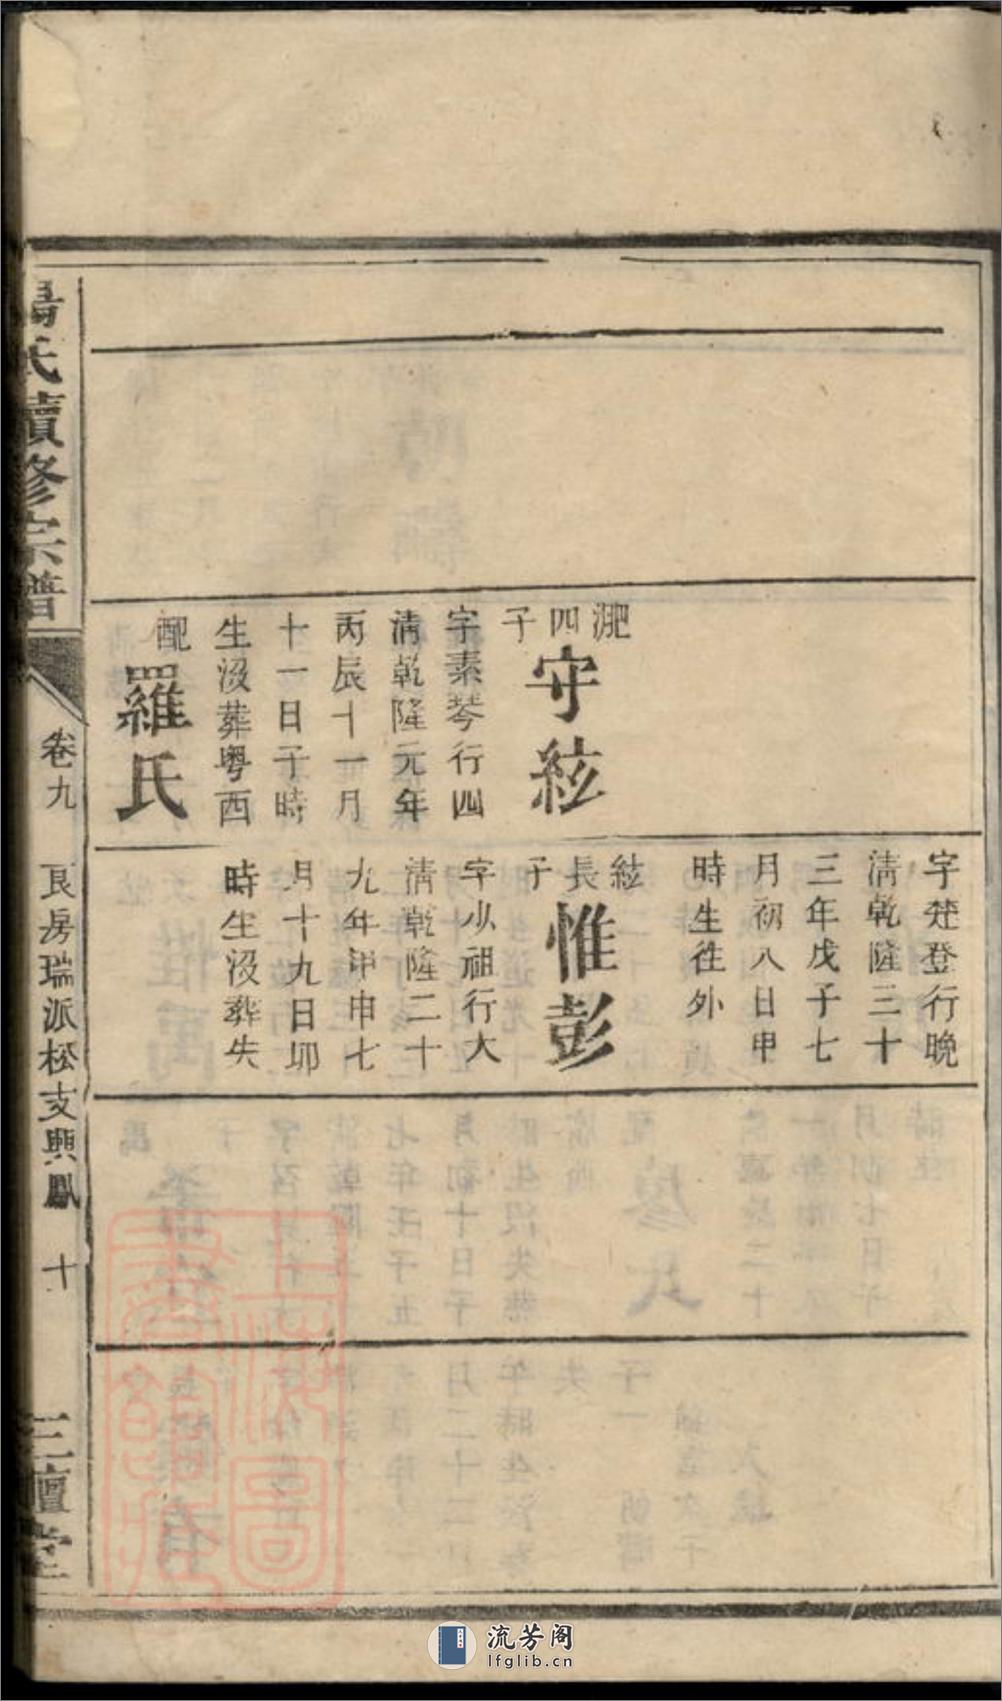 氏續修宗譜
卷九
艮房瑞派松支興鳳
十
三
堂
淝
四
子
守絃
字素琴行四
清乾隆元年
丙辰十一月
十一日子時
生沒葬粤西
配
羅氏
字楚登行晩
清乾隆三十
三年戊子七
月初八日申
時生徃外
絃
長
子
惟彭
字少祖行大
清乾隆二十
九年甲申七
月十九日卯
時生沒葬失
上海圖書館藏
流芳阁
lfglib.cn